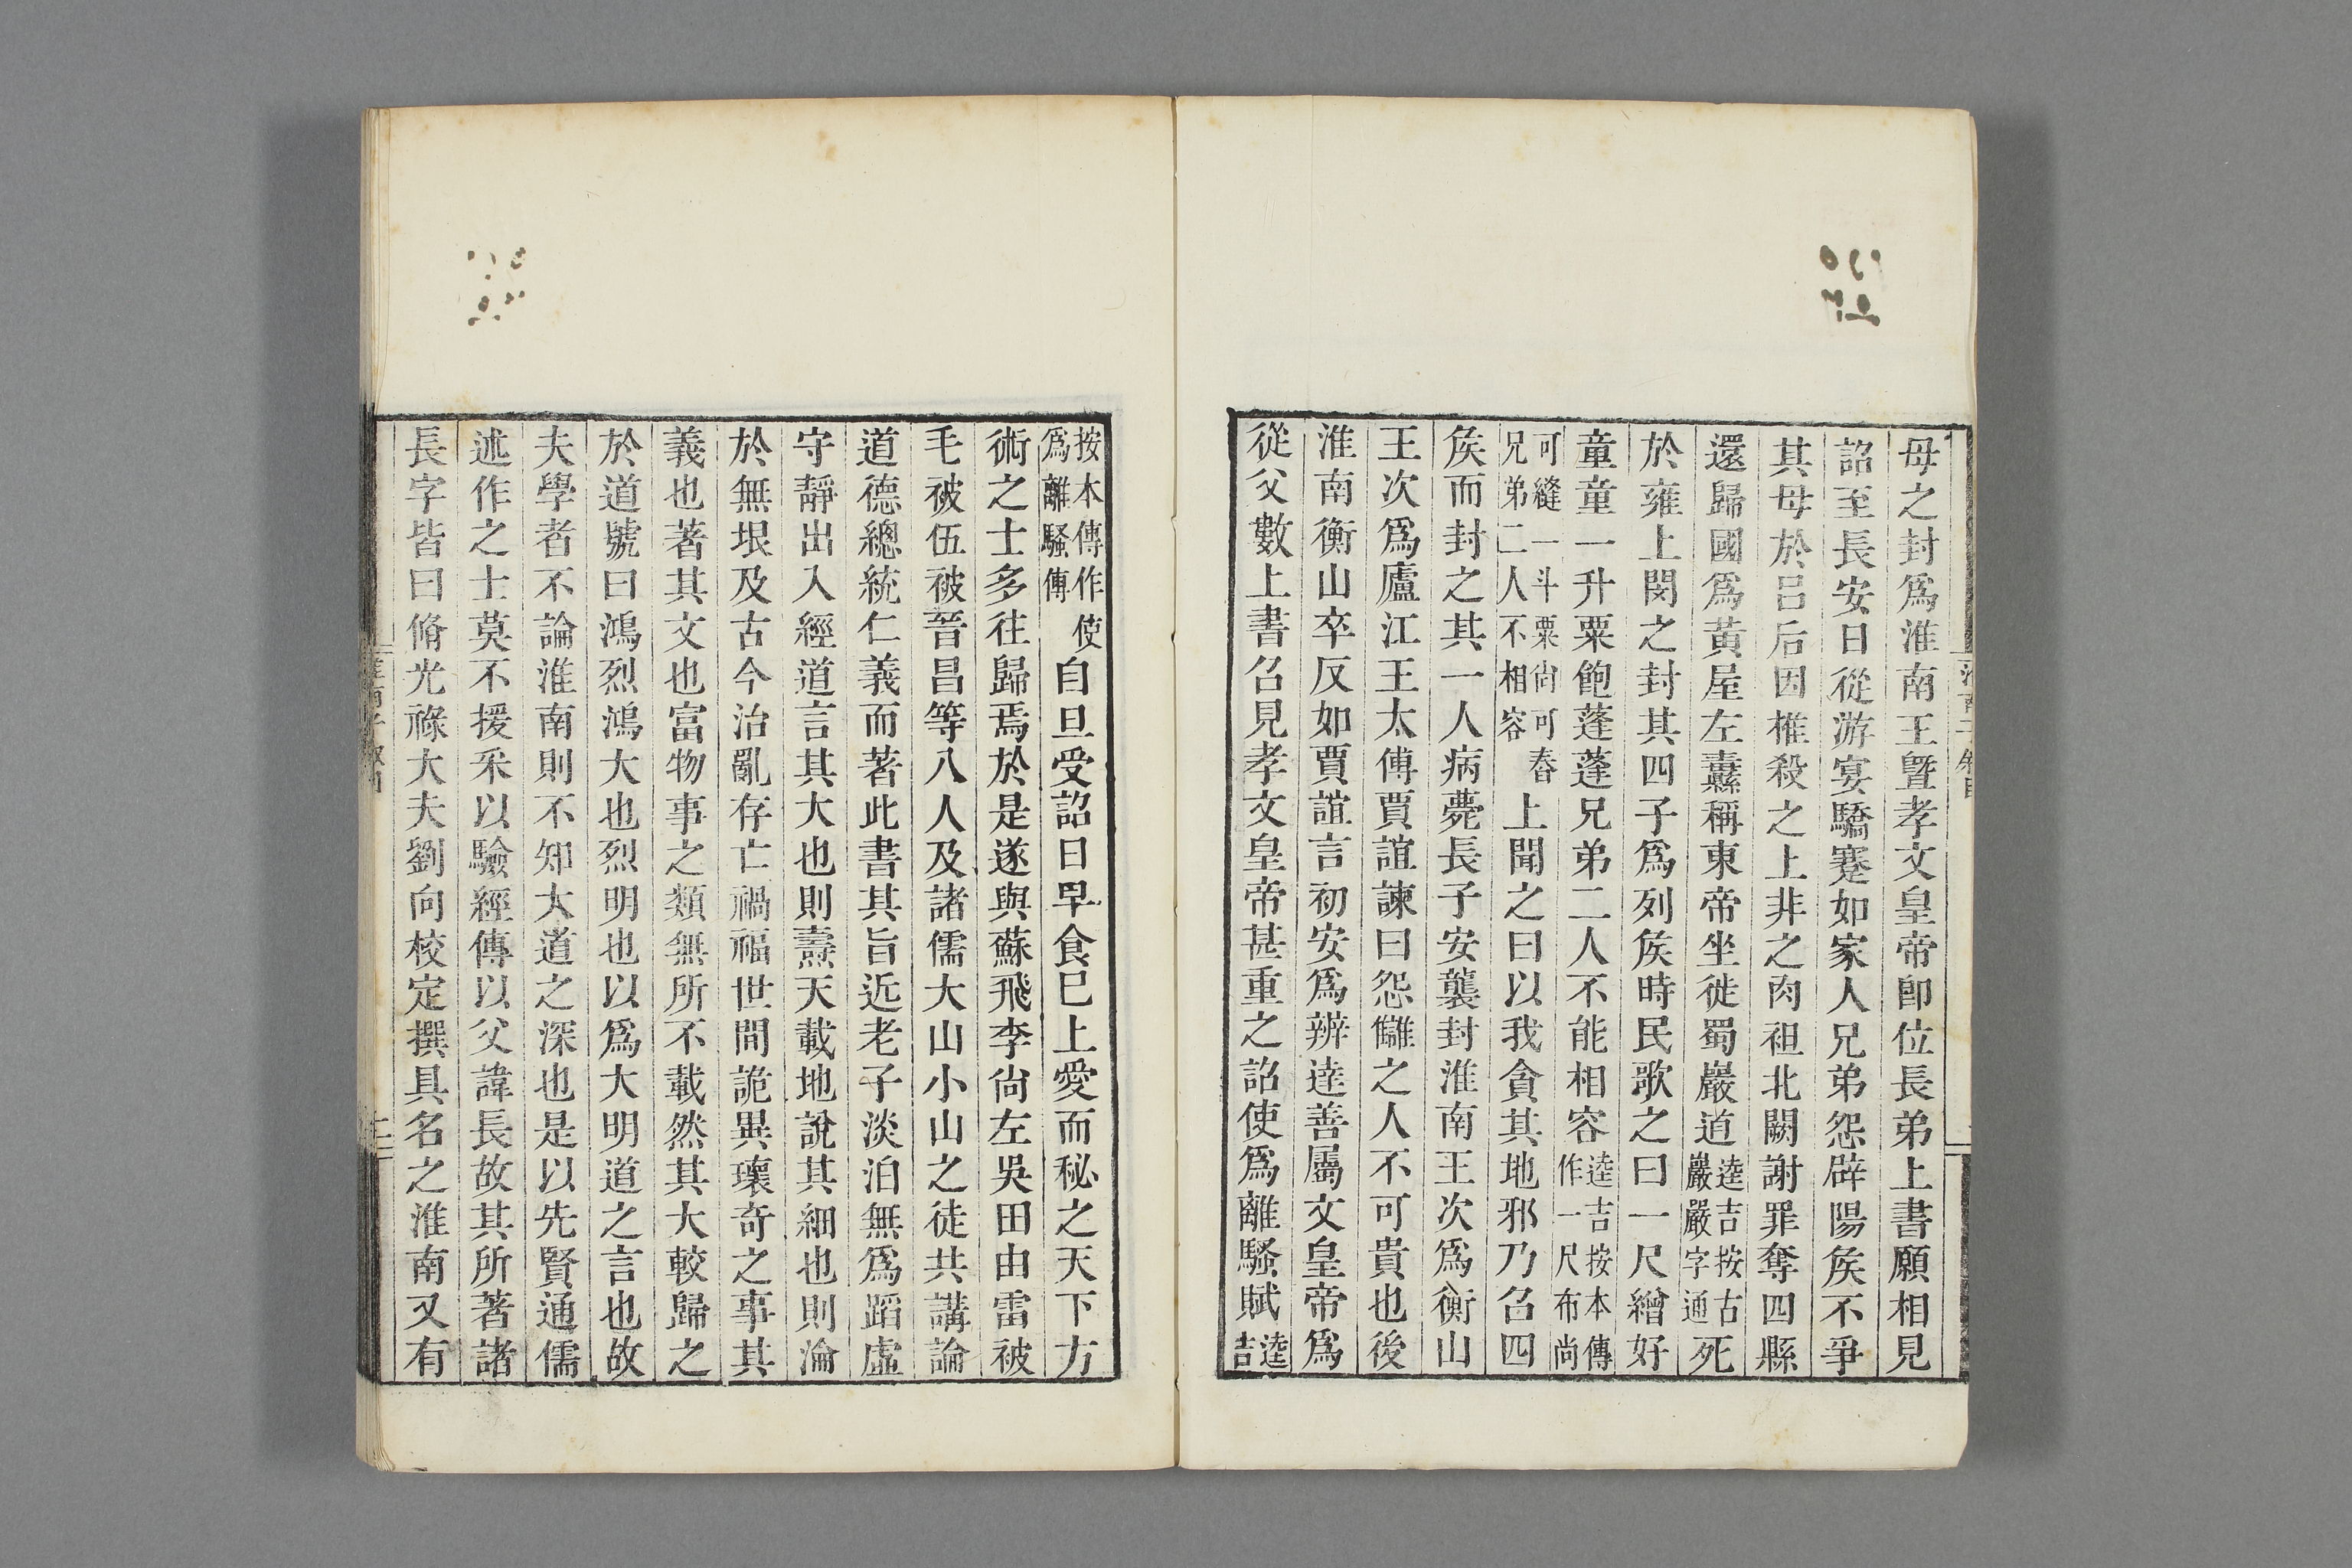 母之封爲淮南王曁孝文皇帝卽位長弟上書願相見
詔至長安日從游宴驕蹇如家人兄弟怨辟陽矦不爭
其母於呂后因椎殺之上非之肉袒北闕謝罪奪四縣
還歸國爲黃屋左纛稱東帝坐徙蜀嚴道逵吉按古巖嚴字通死
於雍上閔之封其四子爲列矦時民歌之曰一尺繒好
童童一升粟飽蓬蓬兄弟二人不能相容逵吉按本傳作一尺布尚
可縫一斗粟尚可舂兄弟二人不相容上聞之曰以我貪其地邪乃召四
矦而封之其一人病薨長子安襲封淮南王次爲衡山
王次爲廬江王太傅賈誼諫曰怨讎之人不可貴也後
淮南衡山卒反如賈誼言初安爲辨達善屬文皇帝爲
從父數上書召見孝文皇帝甚重之詔使爲離騷賦逵吉
按本傳作使爲離騷傅自旦受詔日早食巳上愛而秘之天下方
術之士多往歸焉於是遂與蘇飛李尚左吳田由雷被
毛被伍被晉昌等八人及諸儒大山小山之徒共講論
道德總統仁義而著此書其旨近老子淡泊無爲蹈虛
守靜出入經道言其大也則燾天載地說其細也則淪
於無垠及古今治亂存亡禍福世間詭異瓌奇之事其
義也著其文也富物事之類無所不載然其大較歸之
於道號曰鴻烈鴻大也烈明也以爲大明道之言也故
夫學者不論淮南則不知大道之深也是以先賢通儒
述作之士莫不援采以驗經傳以父諱長故其所著諸
長字皆曰脩光祿大夫劉向校定撰具名之淮南又有